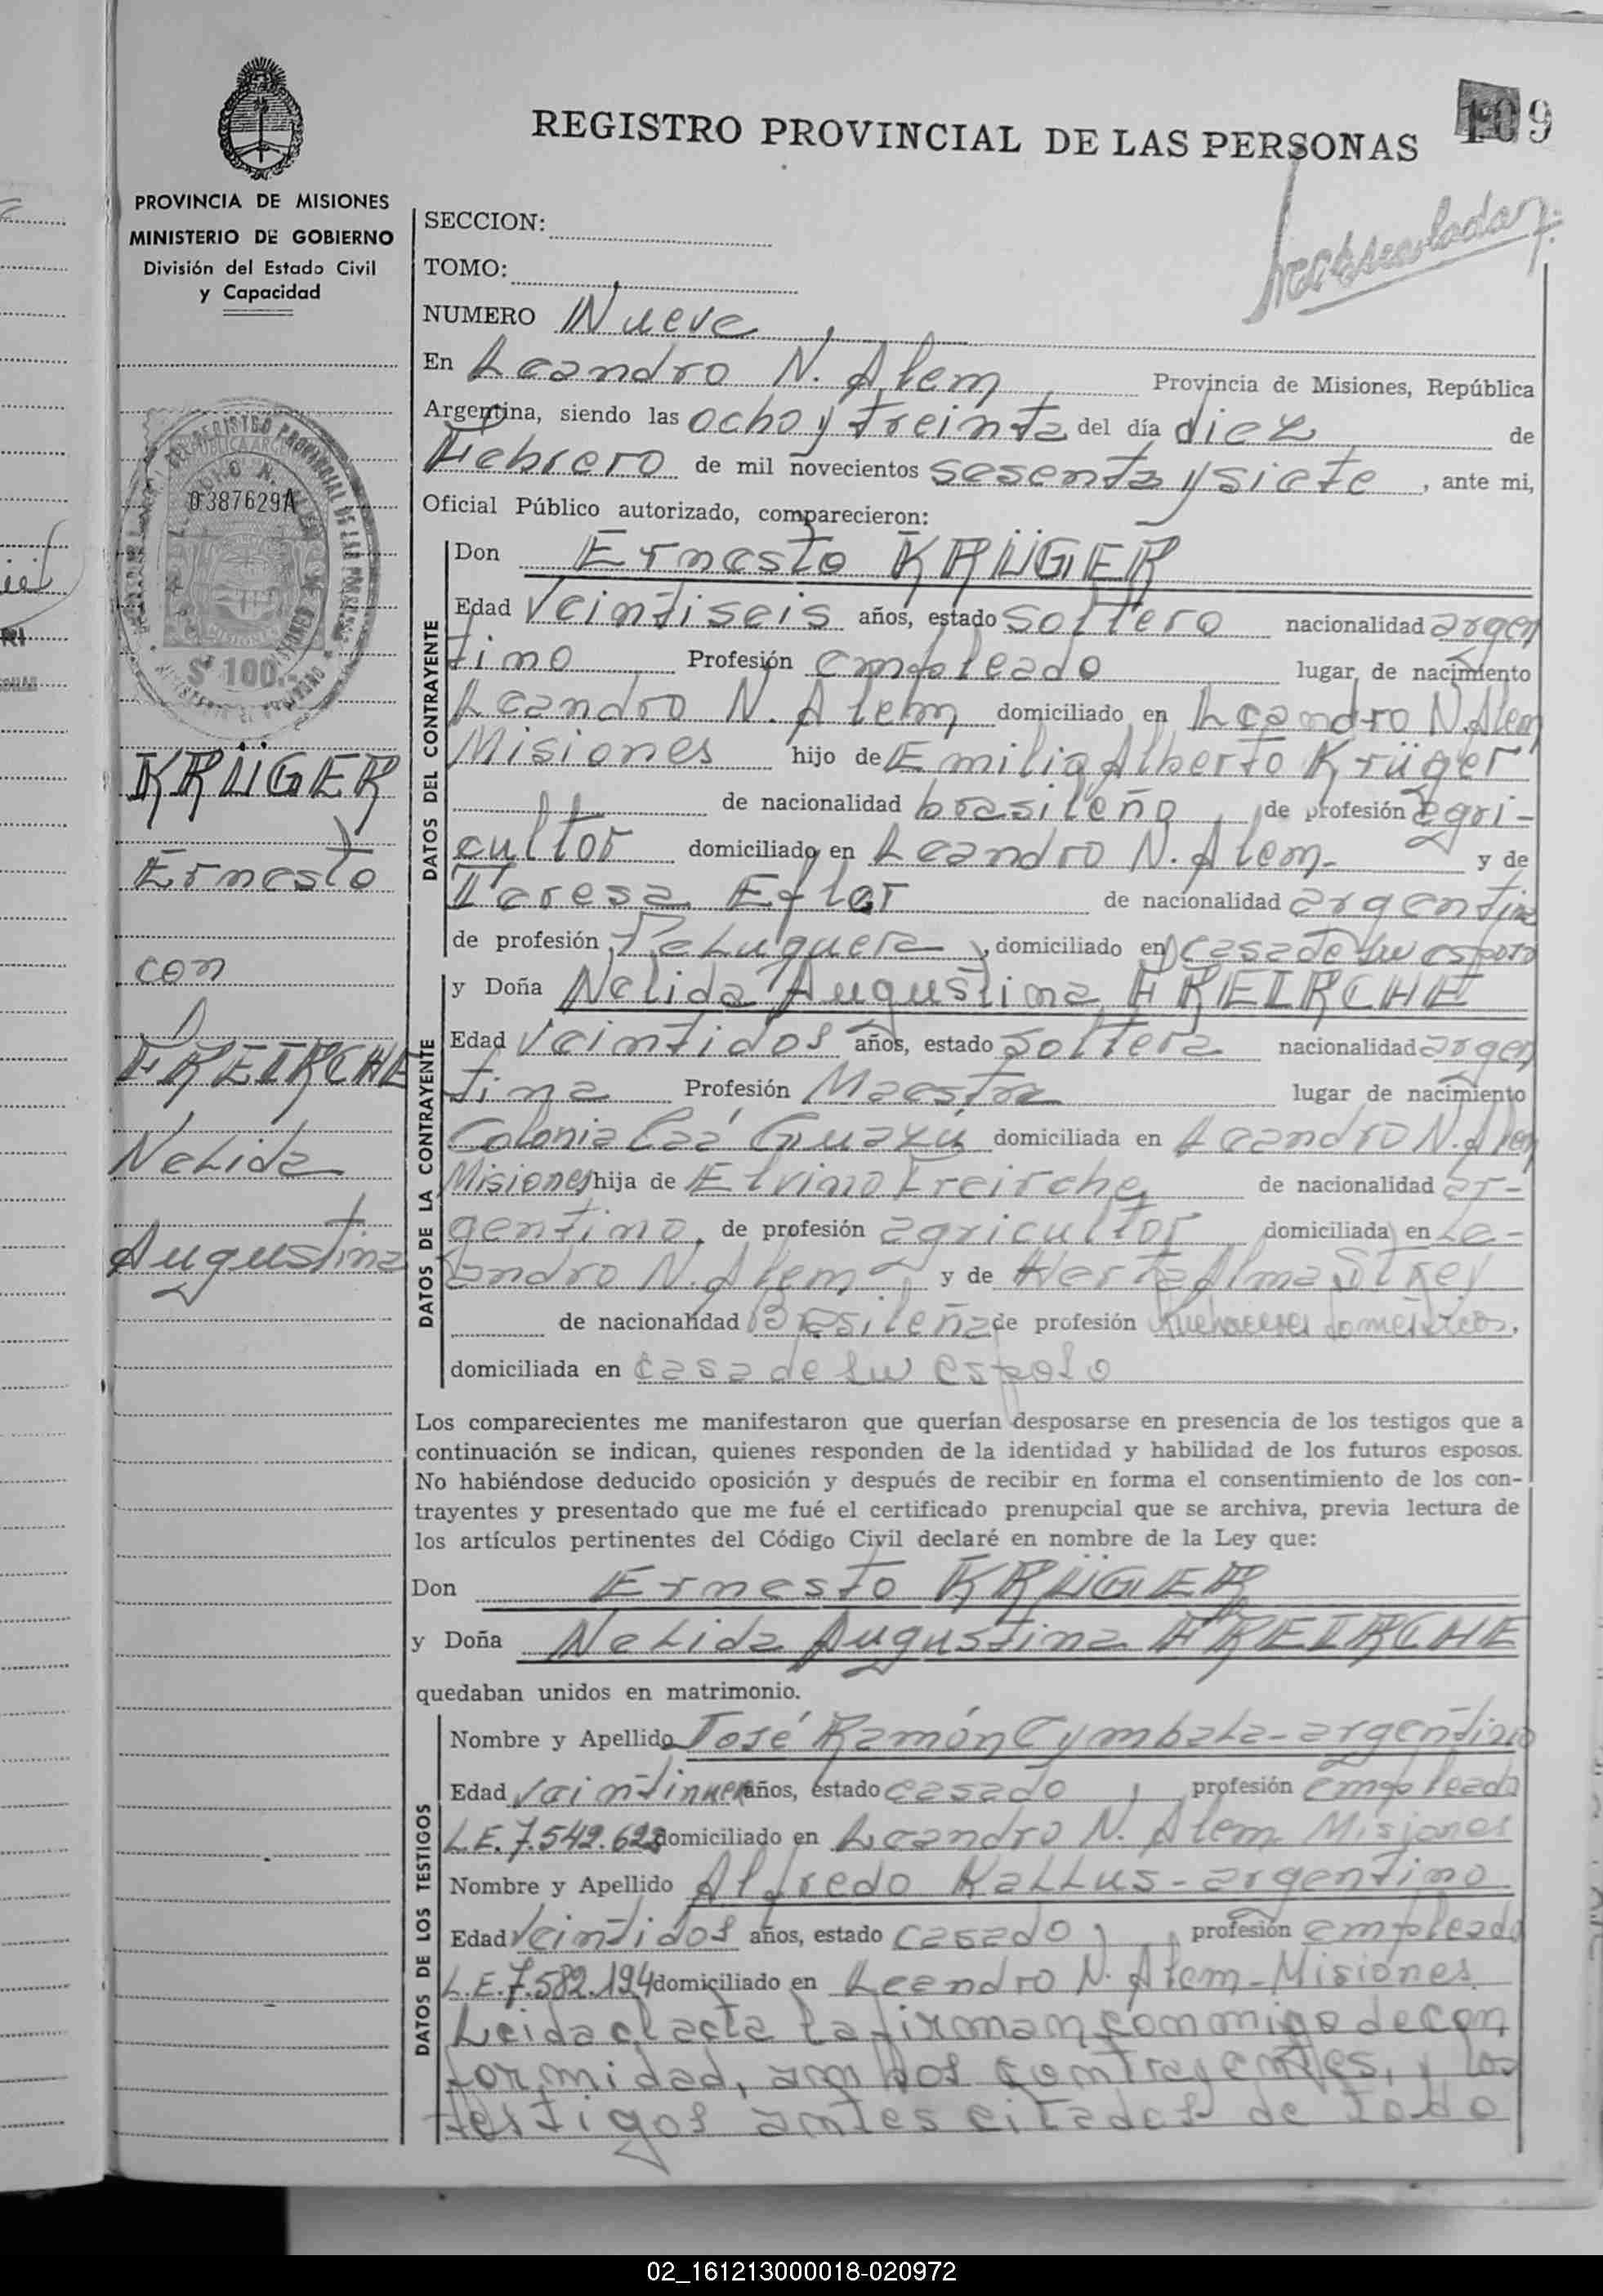 109
REGISTRO PROVINCIAL DE LAS PERSONAS
PROVINCIA DE MISIONES
MINISTERIO DE GOBIERNO
División del Estado Civil
y Capacidad
SECCION:
TOMO:
NUMERO Nueve
En Leandro N. Alem Provincia de Misiones, República
Argentina, siendo las ocho y treinta del día diez de
Febrero de mil novecientos sesenta y siete, ante mi,
Oficial Público autorizado, comparecieron:
03876291A
$ 100.-
KRÜGER
Ernesto
con
FREIRCHE
Nelida
Augustina
DATOS DEL CONTRAYENTE
Don Ernesto KRÜGER
Edad veintiseis años, estado soltero nacionalidad argen
tino Profesión empleado lugar de nacimiento
Leandro N. Alem domiciliado en Leandro N. Alem
Misiones hijo de Emilio Alberto Krüger
de nacionalidad brasileño de profesión agri-
cultor domiciliado en Leandro N. Alem- y de
Teresa Efler de nacionalidad argentina
de profesión Peluquera, domiciliado en casa de su esposo
DATOS DE LA CONTRAYENTE
y Doña Nelida Augustina FREIRCHE
Edad veintidos años, estado soltera nacionalidad argen
tina Profesión Maestra lugar de nacimiento
Colonia Caá Guazú domiciliada en Leandro N. Alem
Misiones hija de Elvino Freirche de nacionalidad ar-
gentino, de profesión agricultor domiciliada en Le-
andro N. Alem y de Herta Alma Strey
de nacionalidad Brasileña de profesión Quehaceres domesticos,
domiciliada en casa de su esposo
Los comparecientes me manifestaron que querían desposarse en presencia de los testigos que a
continuación se indican, quienes responden de la identidad y habilidad de los futuros esposos.
No habiéndose deducido oposición y después de recibir en forma el consentimiento de los con-
trayentes y presentado que me fué el certificado prenupcial que se archiva, previa lectura de
los artículos pertinentes del Código Civil declaré en nombre de la Ley que:
Don Ernesto KRÜGER
y Doña Nelida Augustina FREIRCHE
quedaban unidos en matrimonio.
DATOS DE LOS TESTIGOS
Nombre y Apellido José Ramón Cymbala-argentino
Edad veintinueve años, estado casado, profesión empleado
L.E. 7.549.622 domiciliado en Leandro N. Alem Misiones
Nombre y Apellido Alfredo Kallus-argentino
Edad veintidos años, estado casado, profesión empleado
L.E. 7.582.194 domiciliado en Leandro N. Alem-Misiones
Leida el acta la firman conmigo de con
formidad, ambos contrayentes, y los
testigos antes citados de todo
02_161213000018-020972